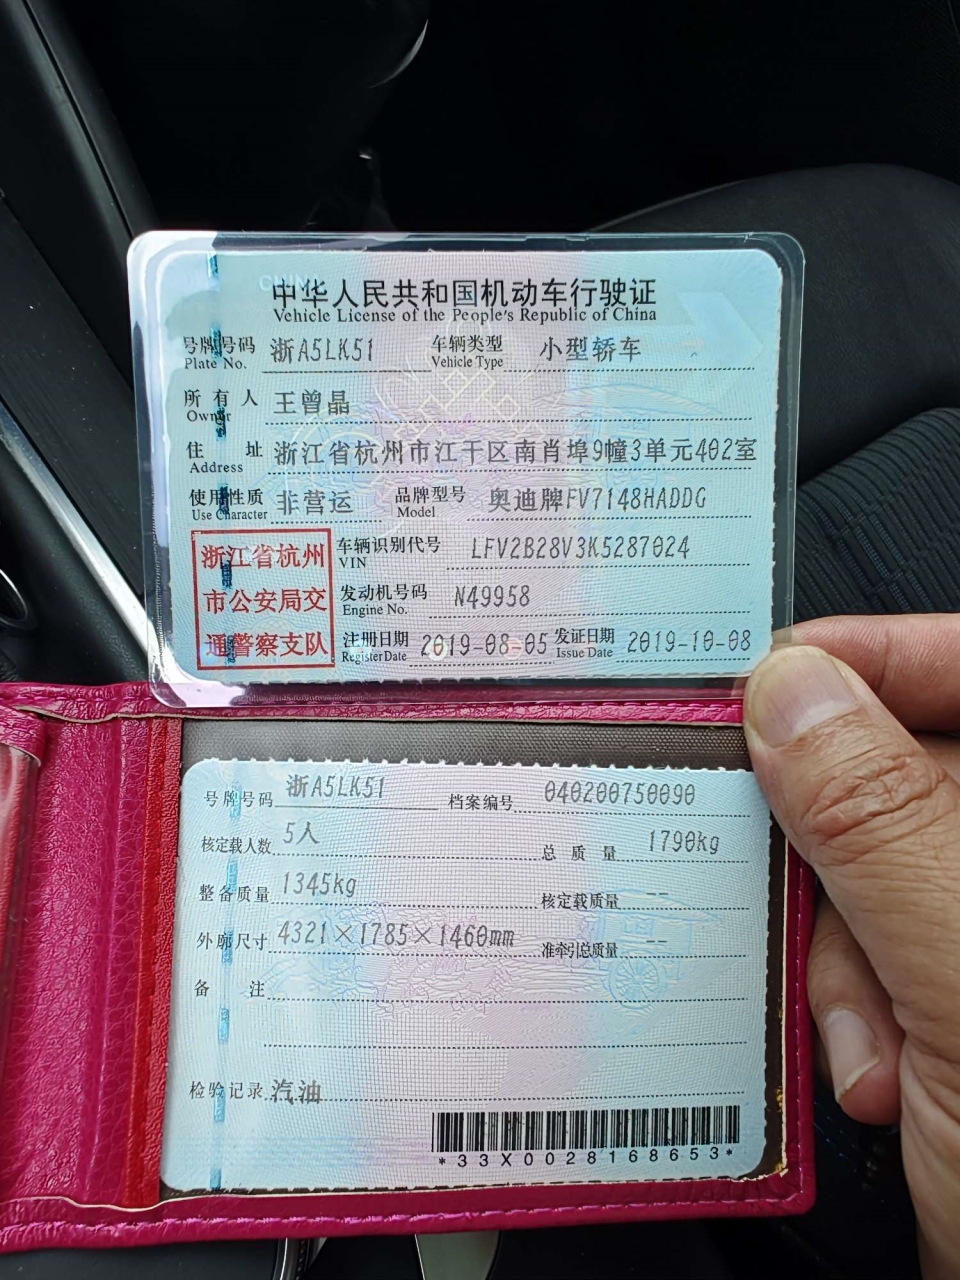 中华人民共和国机动车行驶证
Vehicle License of the People's Republic of China
号牌号码 浙A5LK51 车辆类型 小型轿车
Plate No. Vehicle Type
所有人 王曾晶
Owner
住址 浙江省杭州市江干区南肖埠9幢3单元402室
Address
使用性质 非营运 品牌型号 奥迪牌FV7148HADDG
Use Character Model
浙江省杭州
市公安局交
通警察支队
车辆识别代号 LFV2B28V3K5287024
VIN
发动机号码 N49958
Engine No.
注册日期 2019-08-05 发证日期 2019-10-08
Register Date Issue Date
号牌号码 浙A5LK51 档案编号 040200750090
核定载人数 5人 总质量 1790kg
整备质量 1345kg 核定载质量 --
外廓尺寸 4321×1785×1460mm 准牵引总质量 --
备注
检验记录 汽油
*33X0028168653*